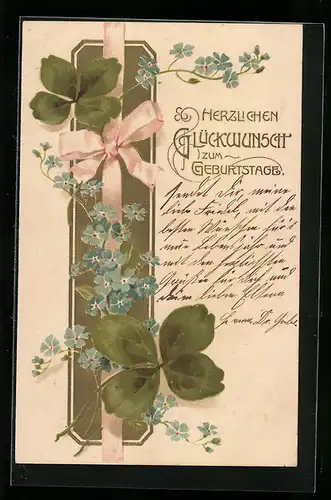 HERZLICHEN
GLÜCKWUNSCH
ZUM
GEBURTSTAGE.
sendet Dir, meine
liebe Friedel, mit den
besten Wünschen für's
neue Lebensjahr und
mit den herzlichsten
Grüßen für Dich und
Deine lieben Eltern